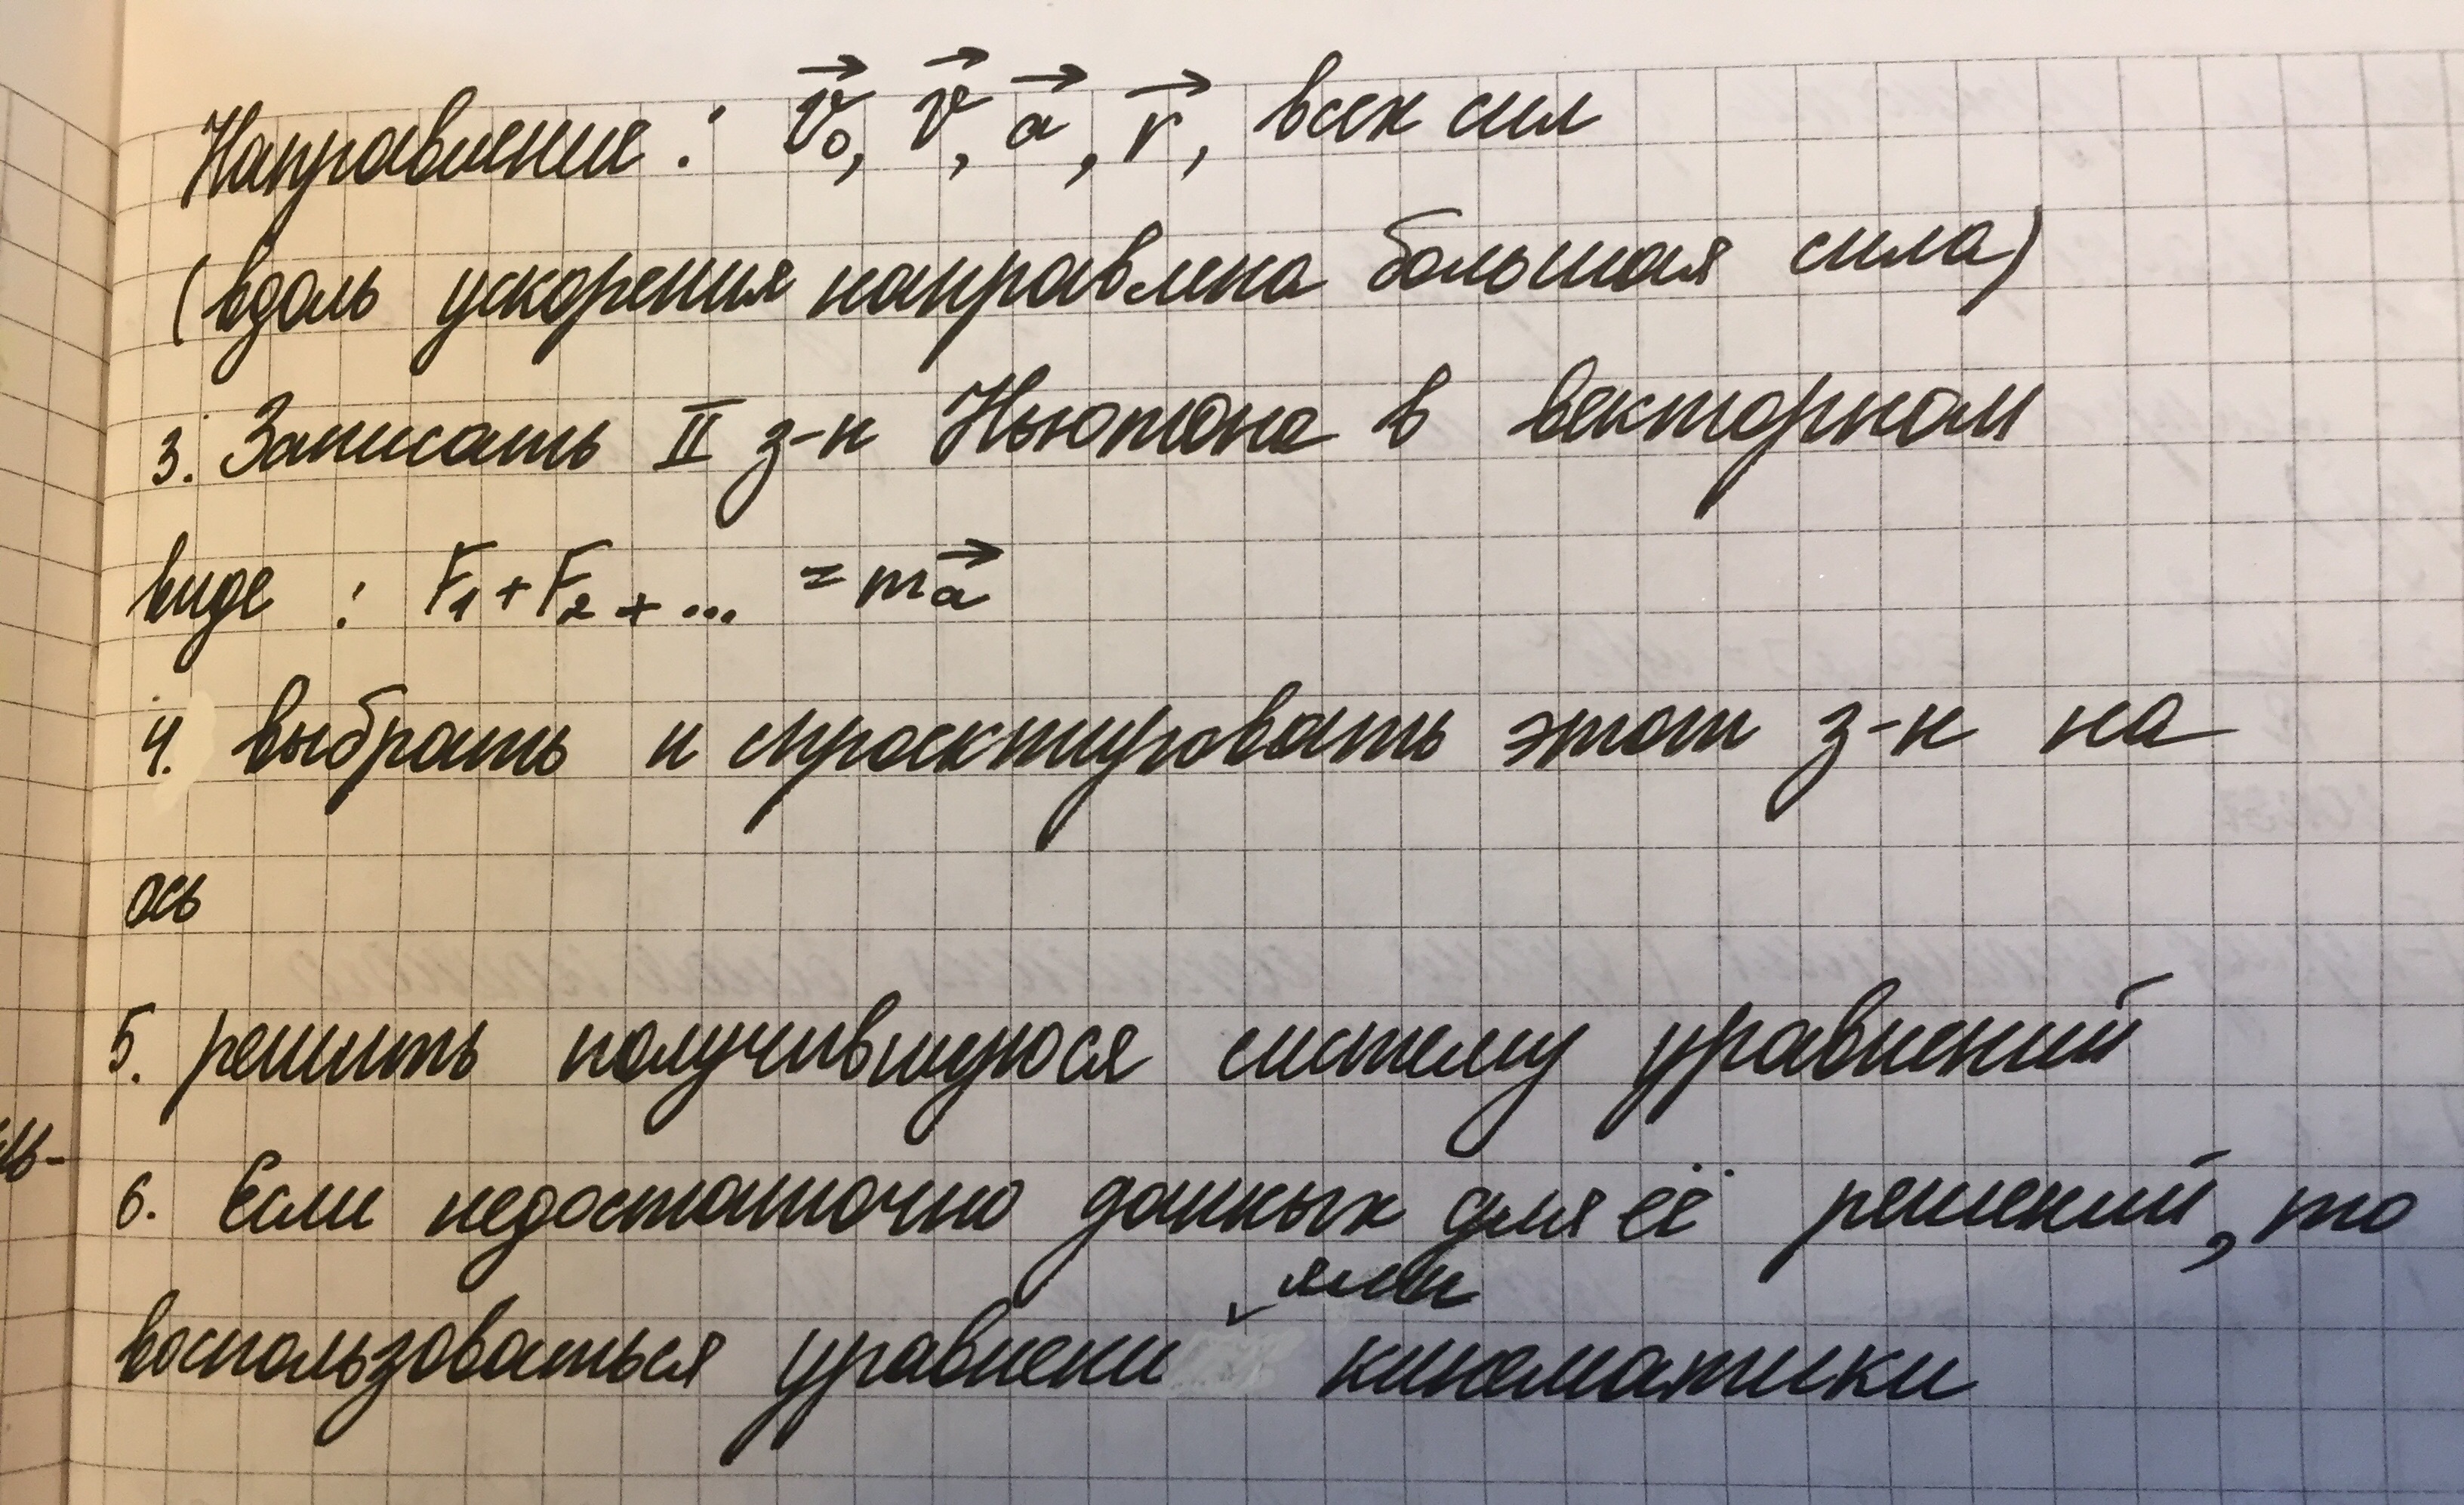 Направление: v⃗₀, v⃗, a⃗, r⃗, всех сил
(вдоль ускорения направлена большая сила)
3. Записать II з-н Ньютона в векторном
виде : F₁+F₂+... = ma⃗
4. выбрать и спроектировать этот з-н на
ось
5. решить получившуюся систему уравнений
6. Если недостаточно данных для её решений, то
ями
воспользоваться уравнени кинематики